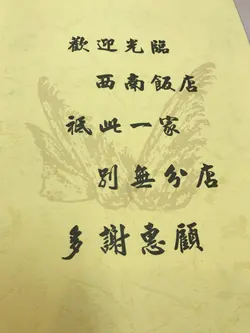 歡迎光臨
西南飯店
祗此一家
別無分店
多謝惠顧